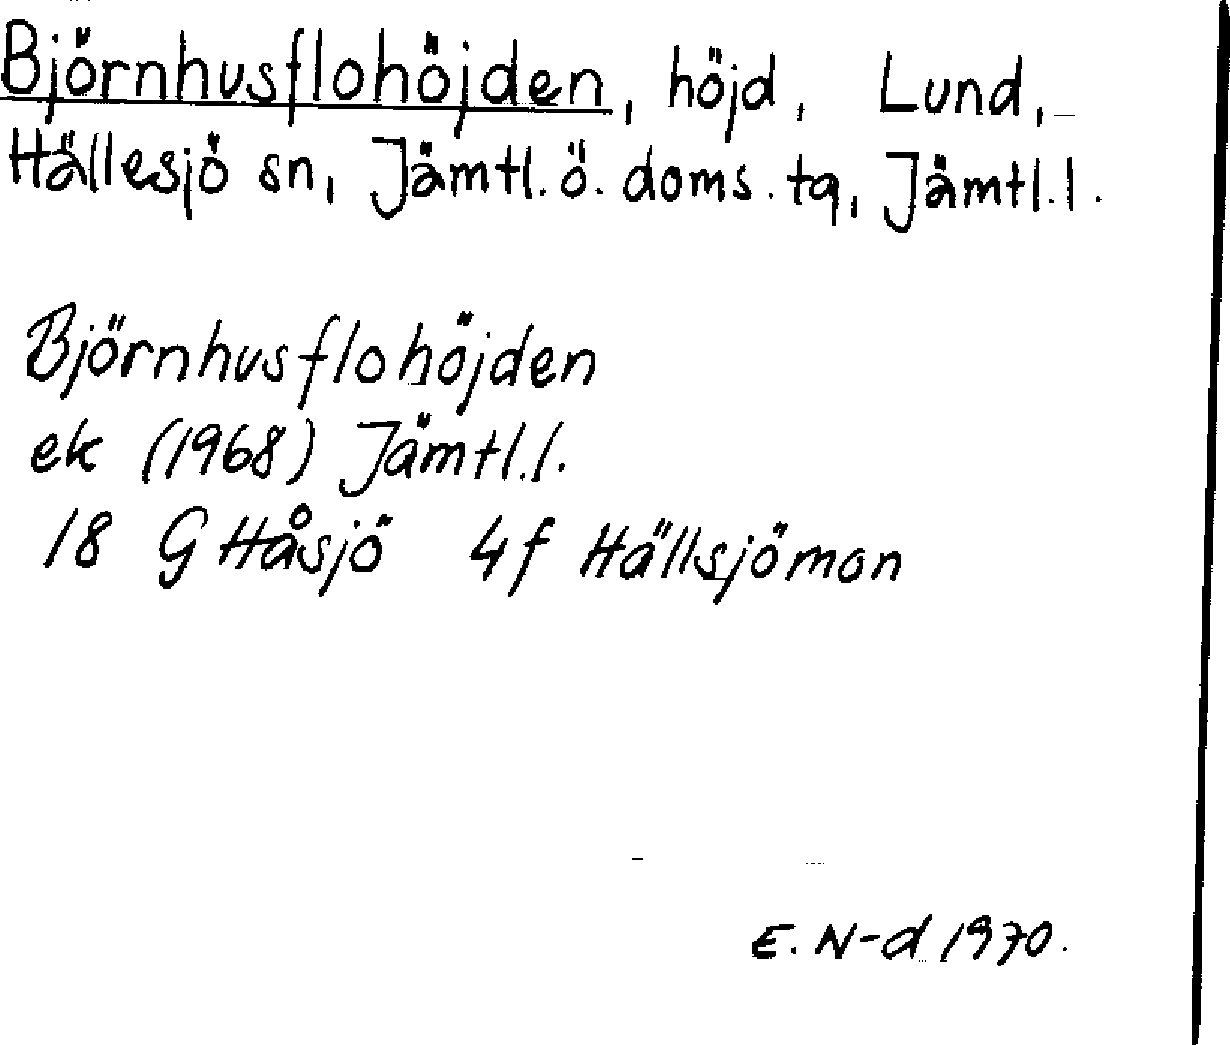 Björnhusflohöjden, höjd, Lund,
Hällesjö sn, Jämtl. ö. doms. tg, Jämtl. l.
Björnhusflohöjden
ek (1968) Jämtl. l.
18 G Håsjö 4f Hällsjömon
E. N-d 1970.